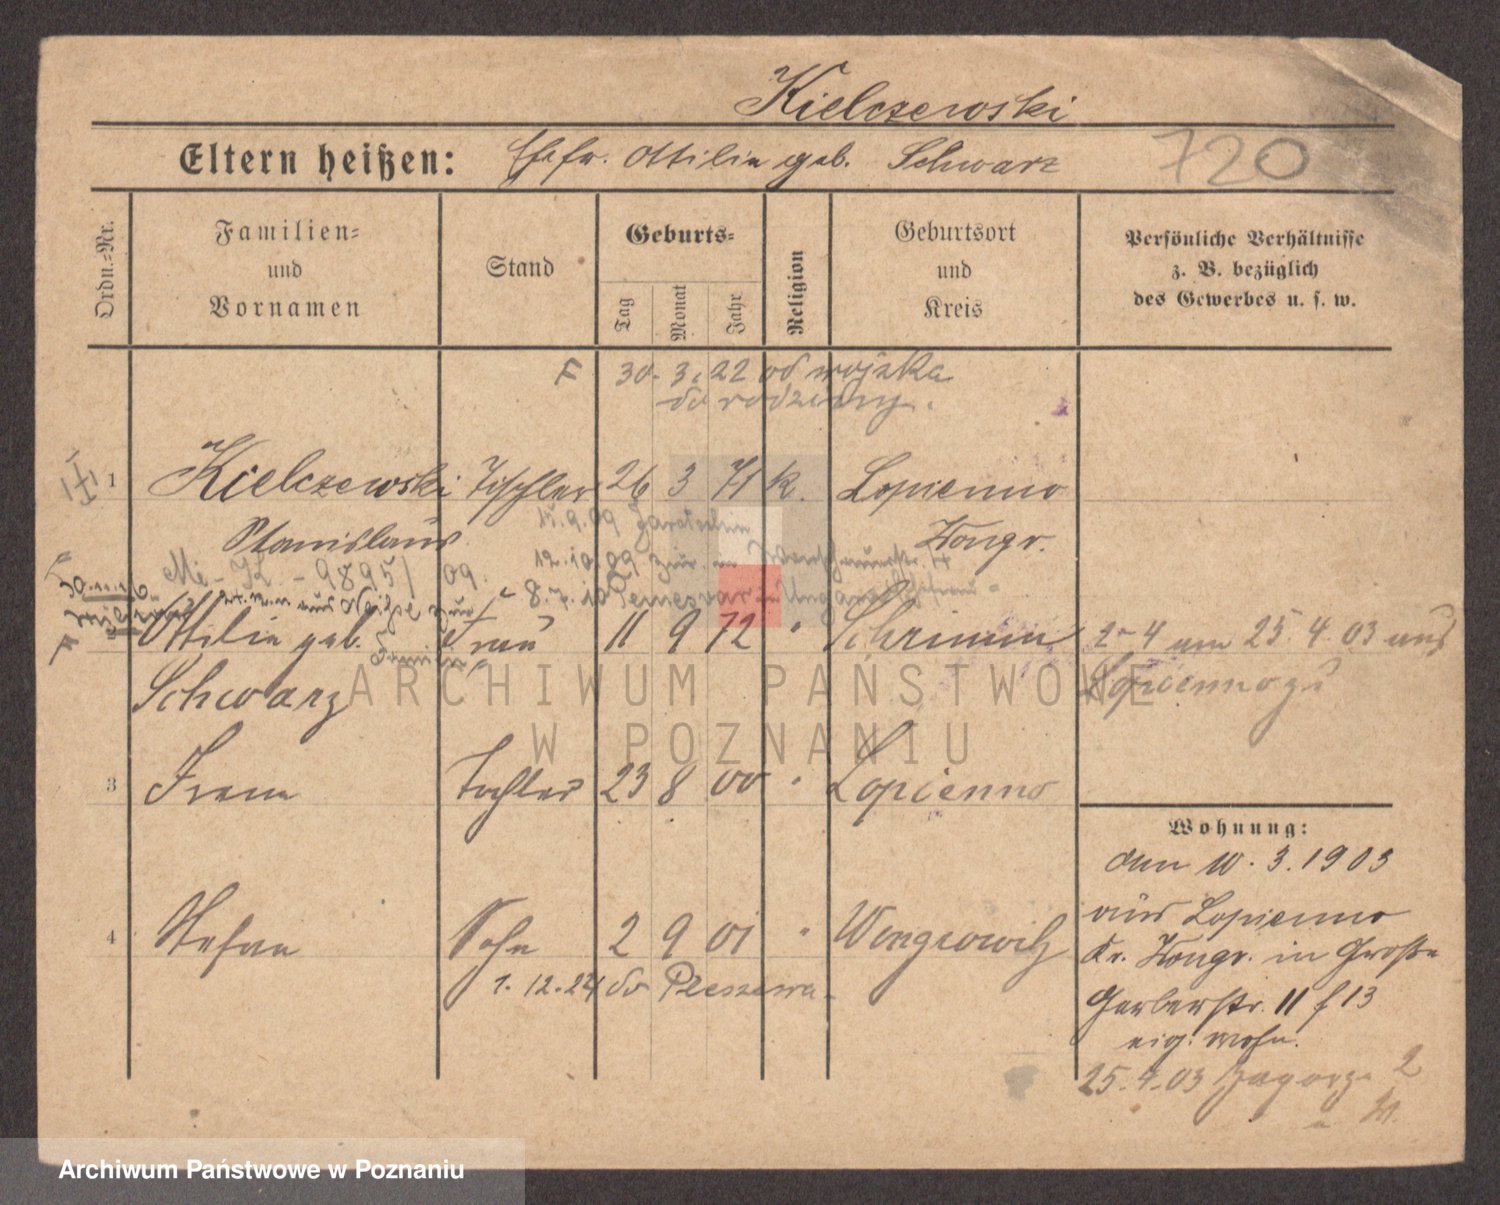 Kielczewski
Eltern heißen: Ehefr. Ottilie geb. Schwarz
720
Ordn.-Nr.
Familien-
und
Vornamen
Stand
Geburts-
Tag
Monat
Jahr
Religion
Geburtsort
und
Kreis
Persönliche Verhältnisse
z. B. bezüglich
des Gewerbes u. s. w.
F 30. 3. 22 od wojska
do rodziny.
1 Kielczewski Tischler 26 3 71 k. Lopienno
Stanislaus Wongr.
15.9.09 Jarotschin
12.10.09 zur. in
8.7.10 Temesvar Ungarn
9895/09.
30.11.16
Ottilie geb. Frau 11 9 72 " Schrimm
Schwarz
2-4 am 25.4.03 aus
Lopienno zu
3 Irene Tochter 23 8 00 " Lopienno
4 Stefan Sohn 2 9 01 " Wongrowitz
1.12.24 do Pleszewa.
Wohnung:
den 10.3.1903
aus Lopienno
Kr. Wongr. in Große
Gerberstr. 11 f 13
eig. Wohn.
25.4.03 Zagorze 2
ARCHIWUM PAŃSTWOWE
W POZNANIU
Archiwum Państwowe w Poznaniu